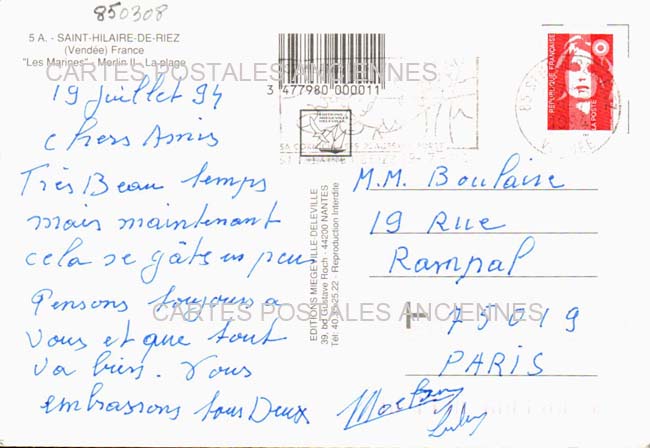 850308
5 A. - SAINT-HILAIRE-DE-RIEZ
(Vendée) France
"Les Marines" - Merlin II - La plage
CARTES POSTALES ANCIENNES
3 477980 000011
RÉPUBLIQUE FRANÇAISE
LA POSTE
19 juillet 94
Chers Amis
Très Beau temps
mais maintenant
cela se gâte un peu
Pensons toujours a
vous et que tout
va bien. Vous
embrassons tous Deux
EDITIONS MIEGEVILLE-DELEVILLE
39, bd Gustave Roch - 44200 NANTES
Tél. 40.35.25.22 - Reproduction Interdite
M.M. Boulaise
19 Rue
Rampal
CARTES POSTALES ANCIENNES
75019
PARIS